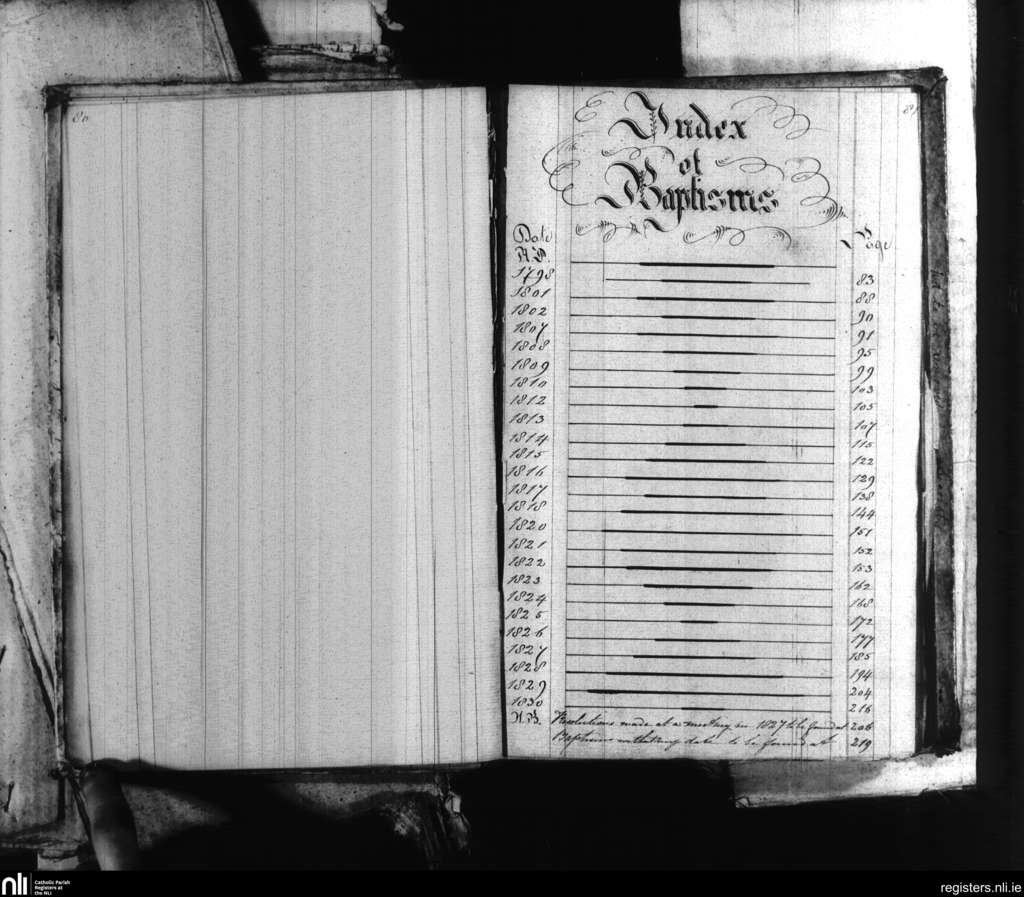 80
81
Index
of
Baptisms
Date Page
A.D.
1798 83
1801 88
1802 90
1807 91
1808 95
1809 99
1810 103
1812 105
1813 107
1814 115
1815 122
1816 129
1817 138
1818 144
1820 151
1821 152
1822 153
1823 162
1824 168
1825 172
1826 177
1827 185
1828 194
1829 204
1830 216
N.B. Resolutions made at a meeting in 1827 to be found at 206
Baptisms without date to be found at 219
nli
Catholic Parish
Registers at
the NLI
registers.nli.ie